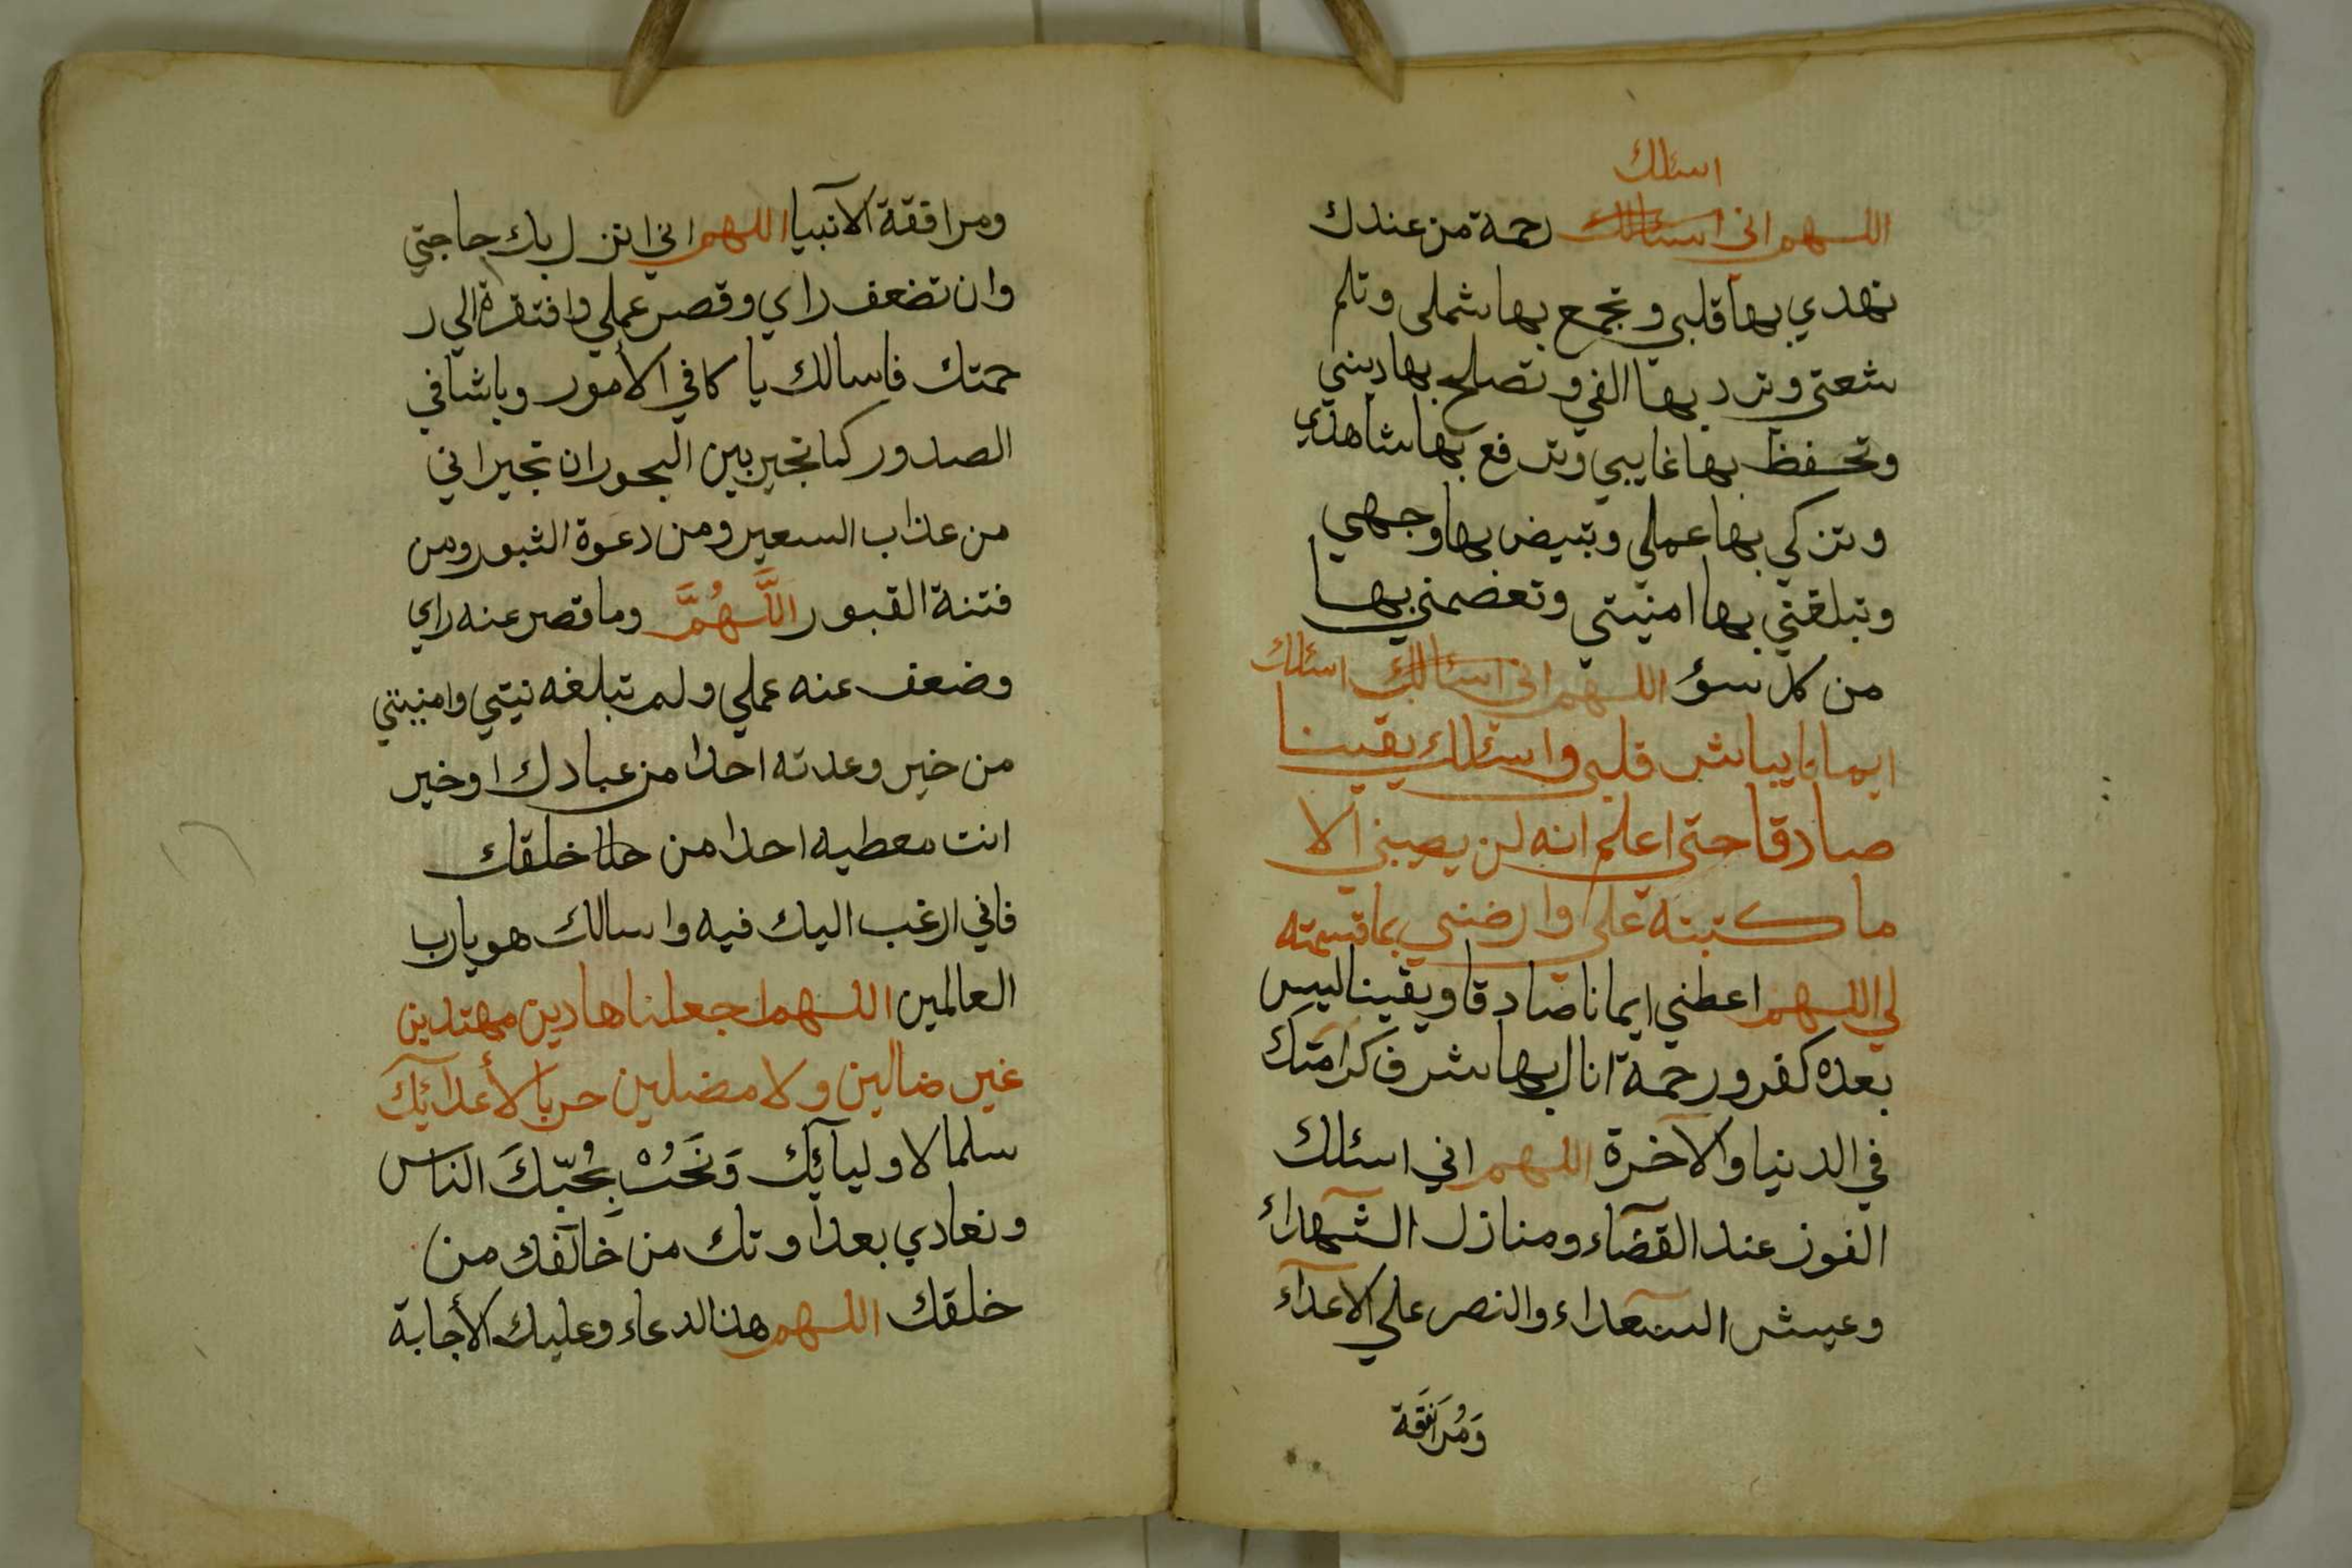 اسئلك
اللهم اني اسئالك رحمة من عندك
تهدي بها قلبي وتجمع بها شملي وتلم
شعتي وترد بها الفي وتصلح بها ديني
وتحفظ بها غايبي وترفع بها شاهدي
وتزكي بها عملي وتبيض بها وجهي
وتبلغني بها امنيتي وتعضمني بها
من كل سوؤ اللهم اني اسئالك اسئلك
ايمانا يباشر قلبي واسئلك يقينا
صادقا حتى اعلم انه لن يصيبني الا
ما كتبته علي وارضني بما قسمته
لي اللهم اعطني ايمانا صادقا ويقينا ليس
بعده كفر ورحمة انال بها شرف كرامتك
في الدنيا والآخرة اللهم اني اسئلك
الفوز عند القضآء ومنازل الشهدآء
وعيش السعدآء والنصر علي الاعدآء
وَمُرَافَقة
ومرافقة الآنبيا اللهم اني انزل بك حاجتي
وان تضعف راي وقصر عملي وافتقرة الي ر
حمتك فاسالك يا كافي الأمور وياشافي
الصدور كما تجير بين البحور ان تجيراني
من عذاب السعير ومن دعوة الثبور ومن
فتنة القبور اللَّهُمَّ وما قصر عنه راي
وضعف عنه عملي ولم تبلغه نيتي وامنيتي
من خير وعدته احدا من عبادك اوخير
انت معطيه احدا من خلقك
فاني ارغب اليك فيه واسالك هو يارب
العالمين اللهم اجعلنا هادين مهتدين
غير ضالين ولا مضلين حربا لأعدآئك
سلما لاوليآئك وَنَحُبْ بِحُبّكَ الناس
ونعادي بعداوتك من خالفك من
خلقك اللهم هذالدعاء وعليك الأجابة